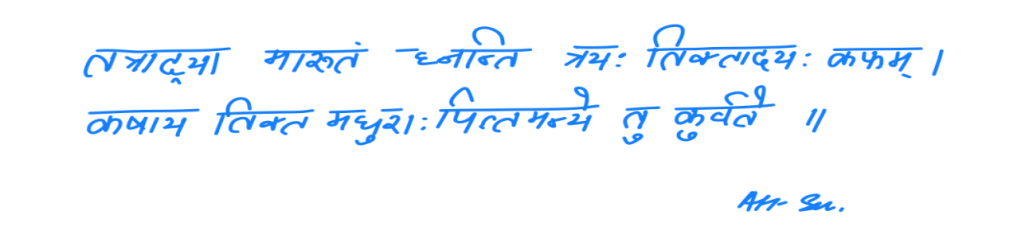 तत्राद्या मारूतं घ्नन्ति त्रयः तिक्तादयः कफम् ।
कषाय तिक्त मधुराः पित्तमन्ये तु कुर्वते ॥
AH- Su.